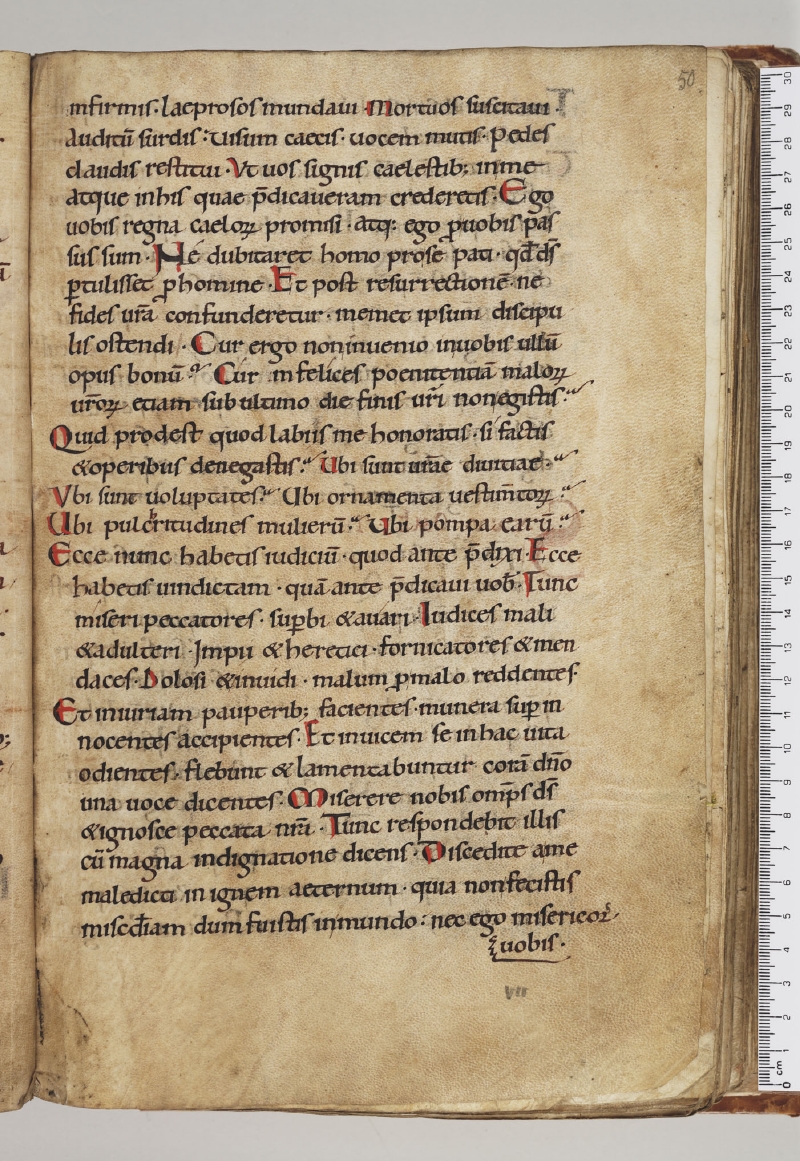 50
infirmis· laeprosos mundaui· Mortuos suscitaui·
Auditū surdis· Uisum caecis· uocem mutis· Pedes
claudis restitui· Vt uos signis caelestib; in me
atque in his quae p̄dicaueram crederetis· Ego
uobis regna caeloꝝ promisi· atq; ego ꝓuobis pas
sus sum· Ne dubitaret homo pro se pati· qd̄ d̄s
ꝑtulisset ꝓ homine· Et post resurrectionē· ne
fides ur̄a confunderetur· memet ipsum discipu
lis ostendi· Cur ergo non inuenio in uobis ullū
opus bonū? Cur infelices poenitentiā maloꝝ
ur̄oꝝ etiam sub ultimo die finis ur̄i non egistis?
Quid prodest quod labiis me honoratis· si factis
& operibus denegastis? Ubi sunt urāe diuitiae?
Vbi sunt uoluptates? Ubi ornamenta uestim̄toꝝ?
Ubi pulcritudines mulierū? Ubi pompa earū?
Ecce nunc habetis iudiciū· quod ante p̄dixi· Ecce
habetis uindictam· quā ante p̄dicaui uob̄· Tunc
miseri peccatores· suꝑbi & auari· Iudices mali
& adulteri· Impii & heretici· fornicatores & men
daces· Dolosi & inuidi· malum ꝑ malo reddentes
Et iniuriam pauperib; facientes· munera suꝑ in
nocentes accipientes· Et inuicem se in hac uita
odientes· flebunt & lamentabuntur corā dn̄o
una uoce dicentes· Miserere nobis omp̄s d̄s
& ignosce peccata nr̄a· Tunc respondebit illis
cū magna indignatione dicens· Discedite a me
maledicti in ignem aeternum· quia non fecistis
misc̄diam dum fuistis in mundo: nec ego misericor̄·
uobis·
VII